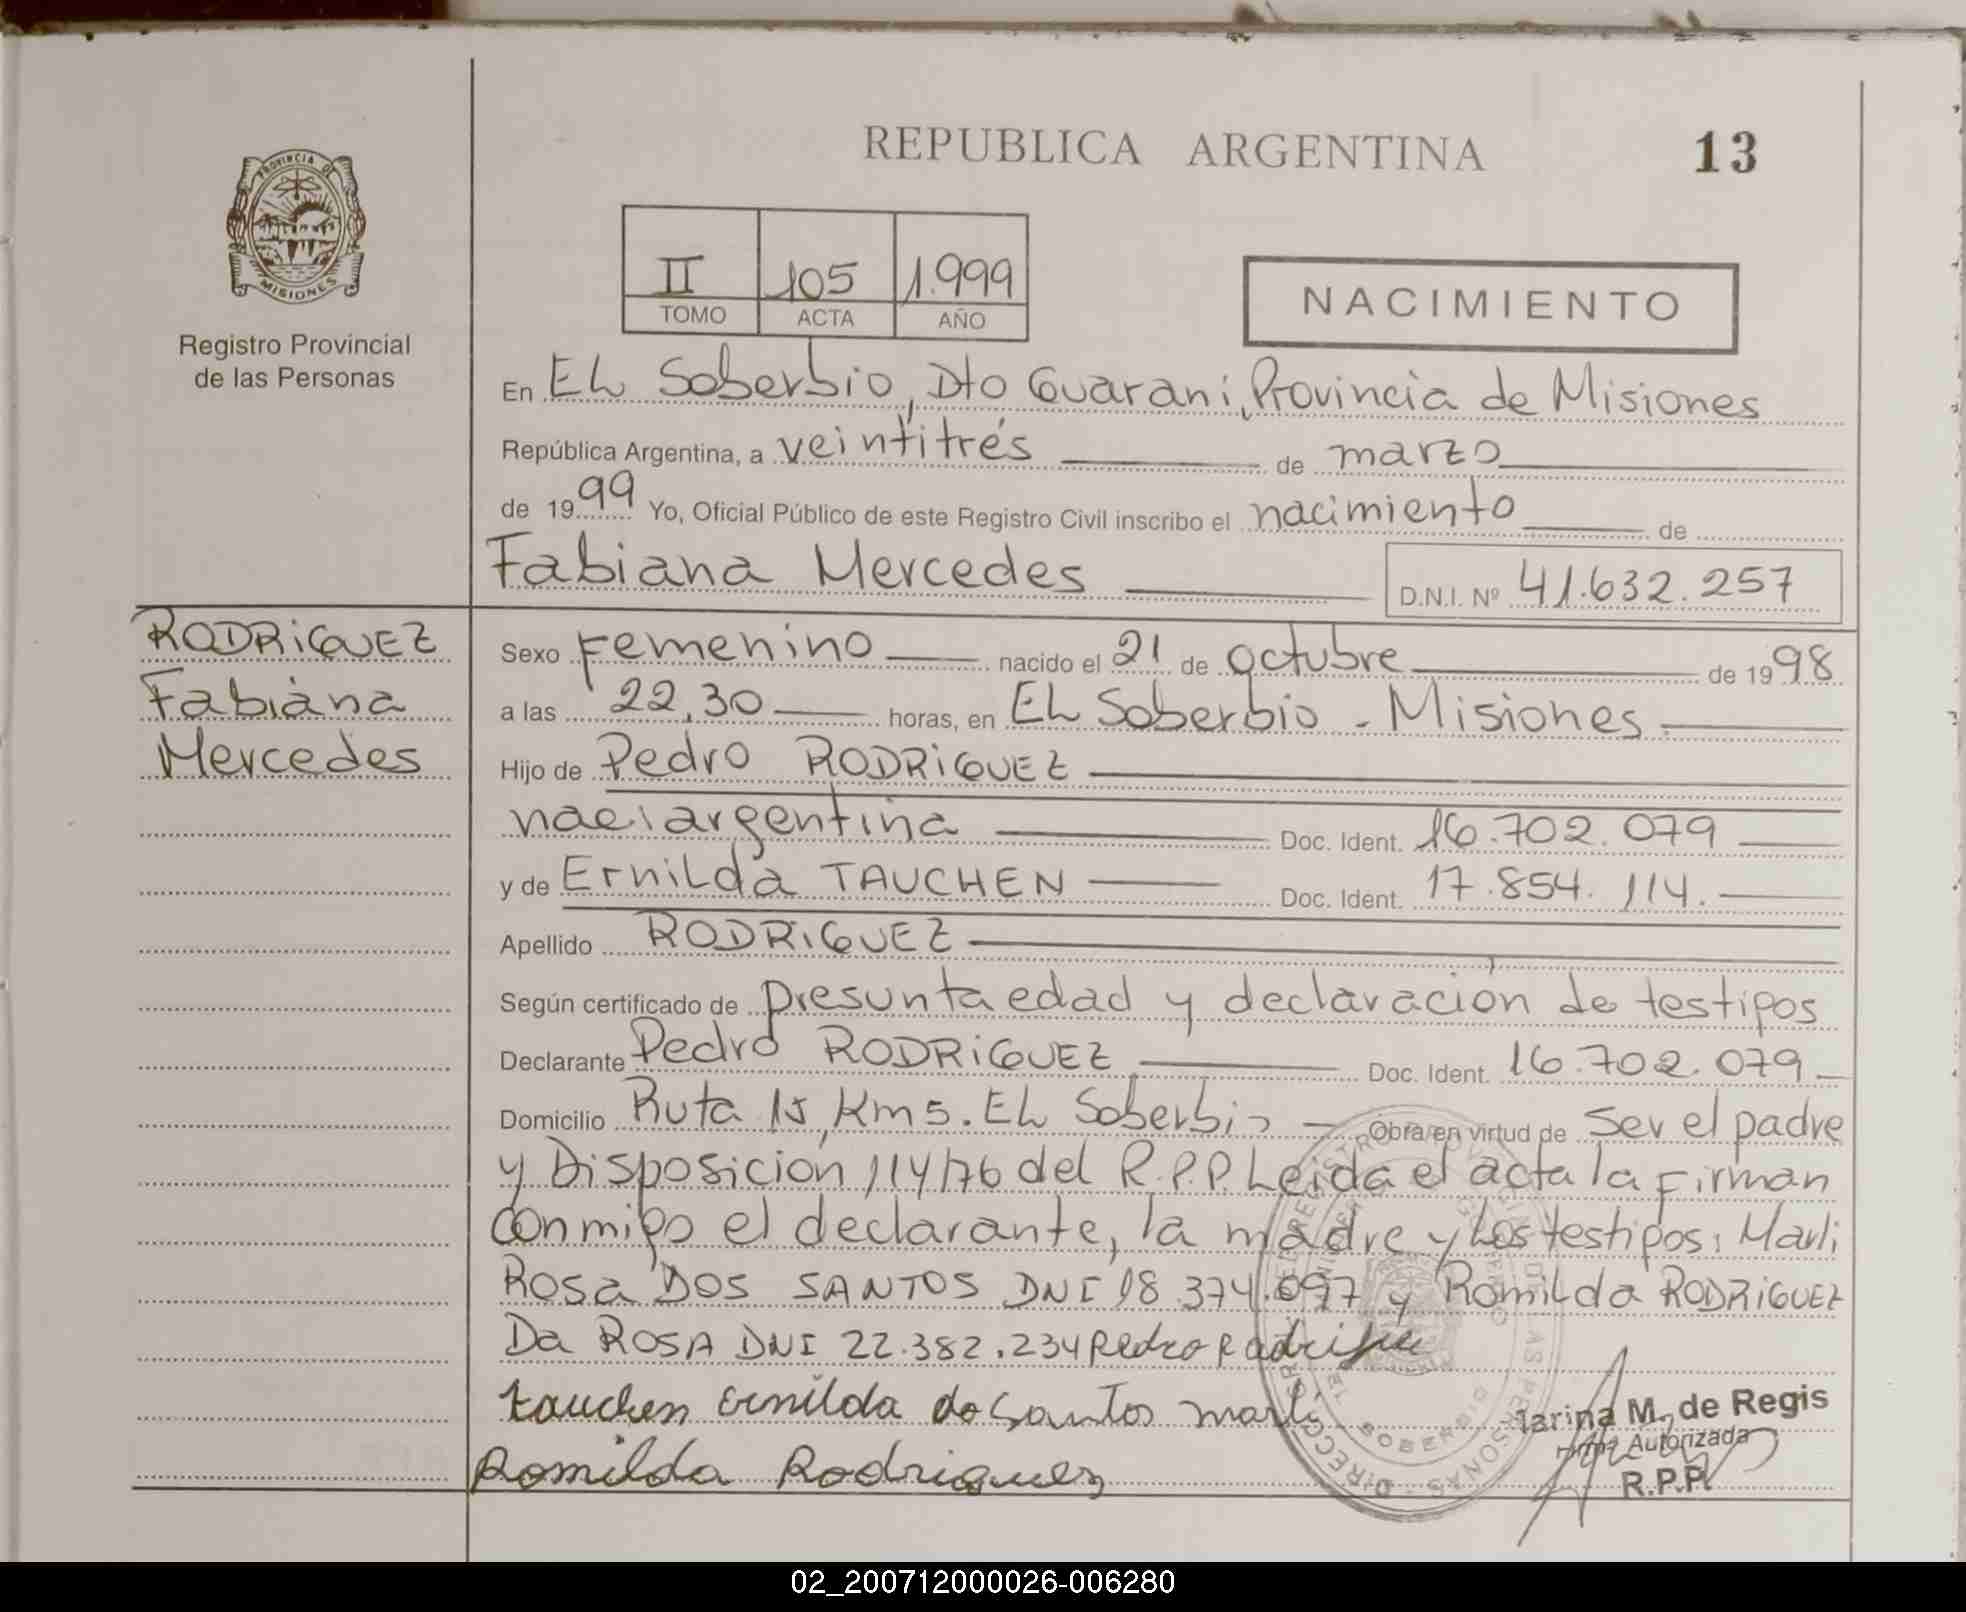 REPUBLICA ARGENTINA 13
PROVINCIA DE
MISIONES
Registro Provincial
de las Personas
II 105 1.999
TOMO ACTA AÑO
NACIMIENTO
En EL Soberbio, Dto Guaraní, Provincia de Misiones
República Argentina, a veintitrés de marzo
de 1999 Yo, Oficial Público de este Registro Civil inscribo el nacimiento de
Fabiana Mercedes D.N.I. Nº 41.632.257
RODRIGUEZ
Fabiana
Mercedes
Sexo Femenino nacido el 21 de octubre de 1998
a las 22,30 horas, en EL Soberbio - Misiones.
Hijo de Pedro RODRIGUEZ
nac. argentina Doc. Ident. 16.702.079
y de Ernilda TAUCHEN Doc. Ident. 17.854.114.
Apellido RODRIGUEZ
Según certificado de presunta edad y declaración de testigos
Declarante Pedro RODRIGUEZ Doc. Ident. 16.702.079
Domicilio Ruta 15, Km 5. EL Soberbio Obra en virtud de ser el padre
y Disposición 114/76 del R.P.P. Leida el acta la firman
conmigo el declarante, la madre y Los testigos: Marli
Rosa DOS SANTOS DNI 18.374.097 y Romilda RODRIGUEZ
Da ROSA DNI 22.382.234 Pedro
tauchen Ernilda do Santos marli
Romilda Rodriguez
SOBERBIO
M. de Regis
Firma Autorizada
R.P.P.
02_200712000026-006280